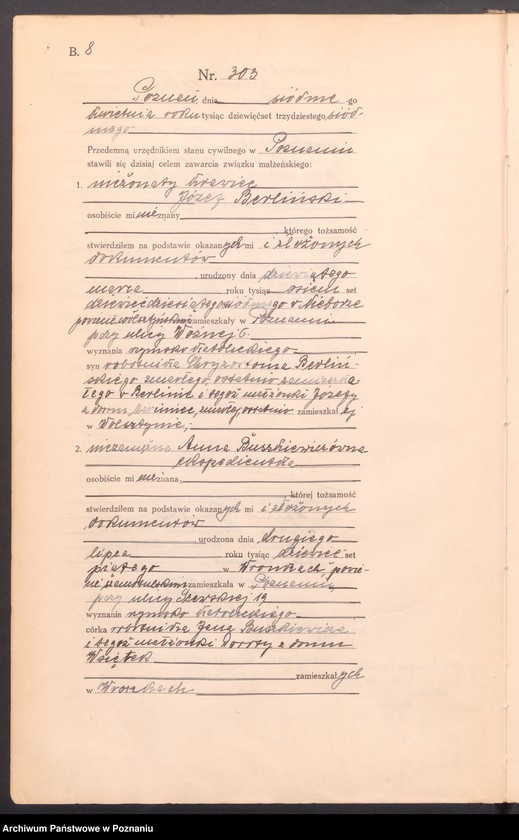 B. 8
Nr. 303
Poznań, dnia siódme-go
kwietnia roku tysiąc dziewięćset trzydziestego siód-
mego
Przedemną urzędnikiem stanu cywilnego w Poznaniu
stawili się dzisiaj celem zawarcia związku małżeńskiego:
1. nieżonaty krawiec
Józef Berliński
osobiście mi nieznany
, którego tożsamość
stwierdziłem na podstawie okazanych mi i złożonych
dokumentów
, urodzony dnia dziewiątego
marca roku tysiąc osiem set
dziewięćdziesiątego siódmego w
powiecie wolsztyńskim zamieszkały w Poznaniu
przy ulicy Woźnej 6.
wyznania rzymsko katolickiego
syn robotnika Chryzostoma Berliń-
skiego, zmarłego, ostatnio zamieszka
łego w Berlinie i tegoż małżonki Józefy
z domu zmarłej, ostatnio zamieszkałej
w Wolsztynie,
2. niezamężna Anna Buszkiewiczówna
ekspedientka
osobiście mi nieznana,
, której tożsamość
stwierdziłem na podstawie okazanych mi i złożonych
dokumentów
, urodzona dnia drugiego
lipca roku tysiąc dziewięć set
piątego w Wronkach powie-
cie szamotulskim zamieszkała w Poznaniu,
przy ulicy Szewskiej 19
wyznania rzymsko katolickiego
córka robotnika Jana Buszkiewicza
i tegoż małżonki Doroty z domu
zamieszkałych
w Wronkach
Archiwum Państwowe w Poznaniu